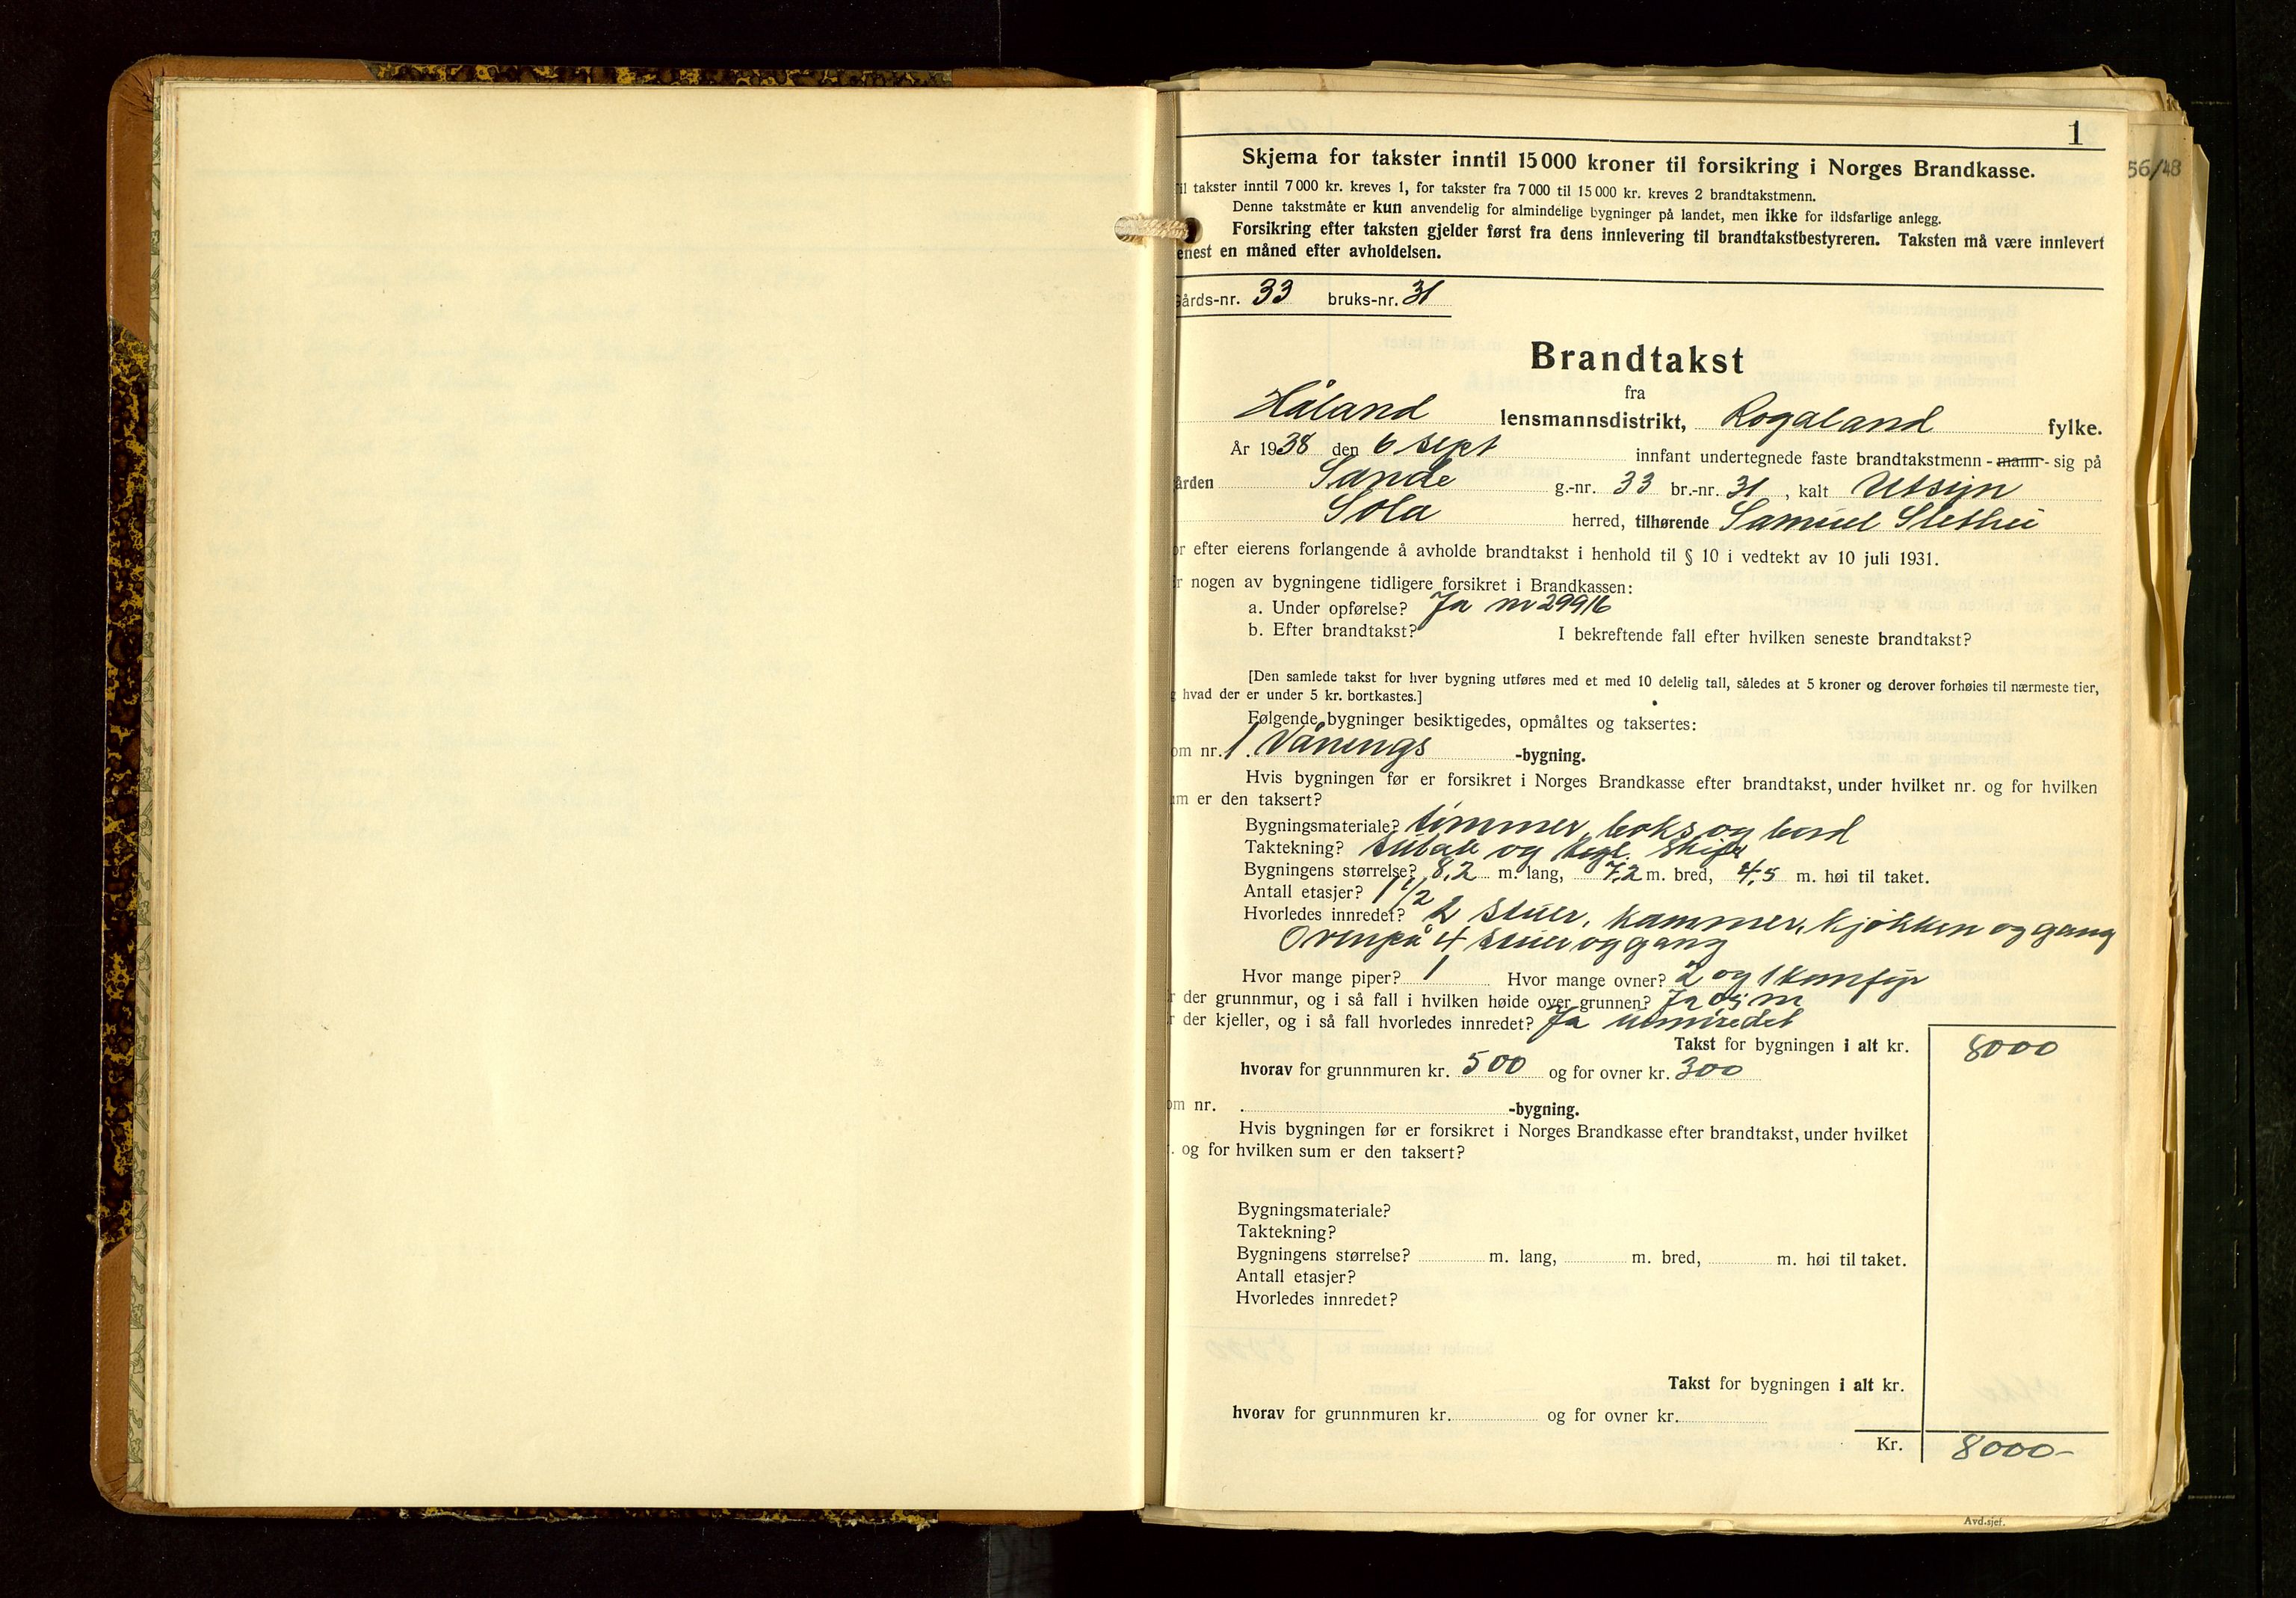 1
Skjema for takster inntil 15 000 kroner til forsikring i Norges Brandkasse.
56/48
il takster inntil 7 000 kr. kreves 1, for takster fra 7 000 til 15 000 kr. kreves 2 brandtakstmenn.
Denne takstmåte er kun anvendelig for almindelige bygninger på landet, men ikke for ildsfarlige anlegg.
Forsikring efter taksten gjelder først fra dens innlevering til brandtakstbestyreren. Taksten må være innlevert
enest en måned efter avholdelsen.
Gårds-nr. 33 bruks-nr. 31
Brandtakst
fra
Håland lensmannsdistrikt, Rogaland fylke.
År 1938 den 6 sept innfant undertegnede faste brandtakstmenn - mann - sig på
ården Sande g.-nr. 33 br.-nr. 31, kalt Utsyn
Sola herred, tilhørende Samuel Slethei
or efter eierens forlangende å avholde brandtakst i henhold til § 10 i vedtekt av 10 juli 1931.
r nogen av bygningene tidligere forsikret i Brandkassen:
a. Under opførelse? Ja nr 29916
b. Efter brandtakst? I bekreftende fall efter hvilken seneste brandtakst?
[Den samlede takst for hver bygning utføres med et med 10 delelig tall, således at 5 kroner og derover forhøies til nærmeste tier,
g hvad der er under 5 kr. bortkastes.]
Følgende bygninger besiktigedes, opmåltes og taksertes:
om nr. 1. Vånings -bygning.
Hvis bygningen før er forsikret i Norges Brandkasse efter brandtakst, under hvilket nr. og for hvilken
um er den taksert?
Bygningsmateriale? timmer, boks og bord
Taktekning? sutak og tegl. skifer
Bygningens størrelse? 8,2 m. lang, 7,2 m. bred, 4,5 m. høi til taket.
Antall etasjer? 1 1/2
Hvorledes innredet? 2 stuer, kammer, kjøkken og gang
Ovenpå 4 stuer og gang
Hvor mange piper? 1 Hvor mange ovner? 2 og 1 komfyr
r der grunnmur, og i så fall i hvilken høide over grunnen? Ja m
r der kjeller, og i så fall hvorledes innredet? Ja uinnredet
Takst for bygningen i alt kr. 8000
hvorav for grunnmuren kr. 500 og for ovner kr. 300
om nr. . -bygning.
Hvis bygningen før er forsikret i Norges Brandkasse efter brandtakst, under hvilket
. og for hvilken sum er den taksert?
Bygningsmateriale?
Taktekning?
Bygningens størrelse? m. lang, m. bred, m. høi til taket.
Antall etasjer?
Hvorledes innredet?
Takst for bygningen i alt kr.
hvorav for grunnmuren kr. og for ovner kr.
Kr. 8000-
Avd.sjef.